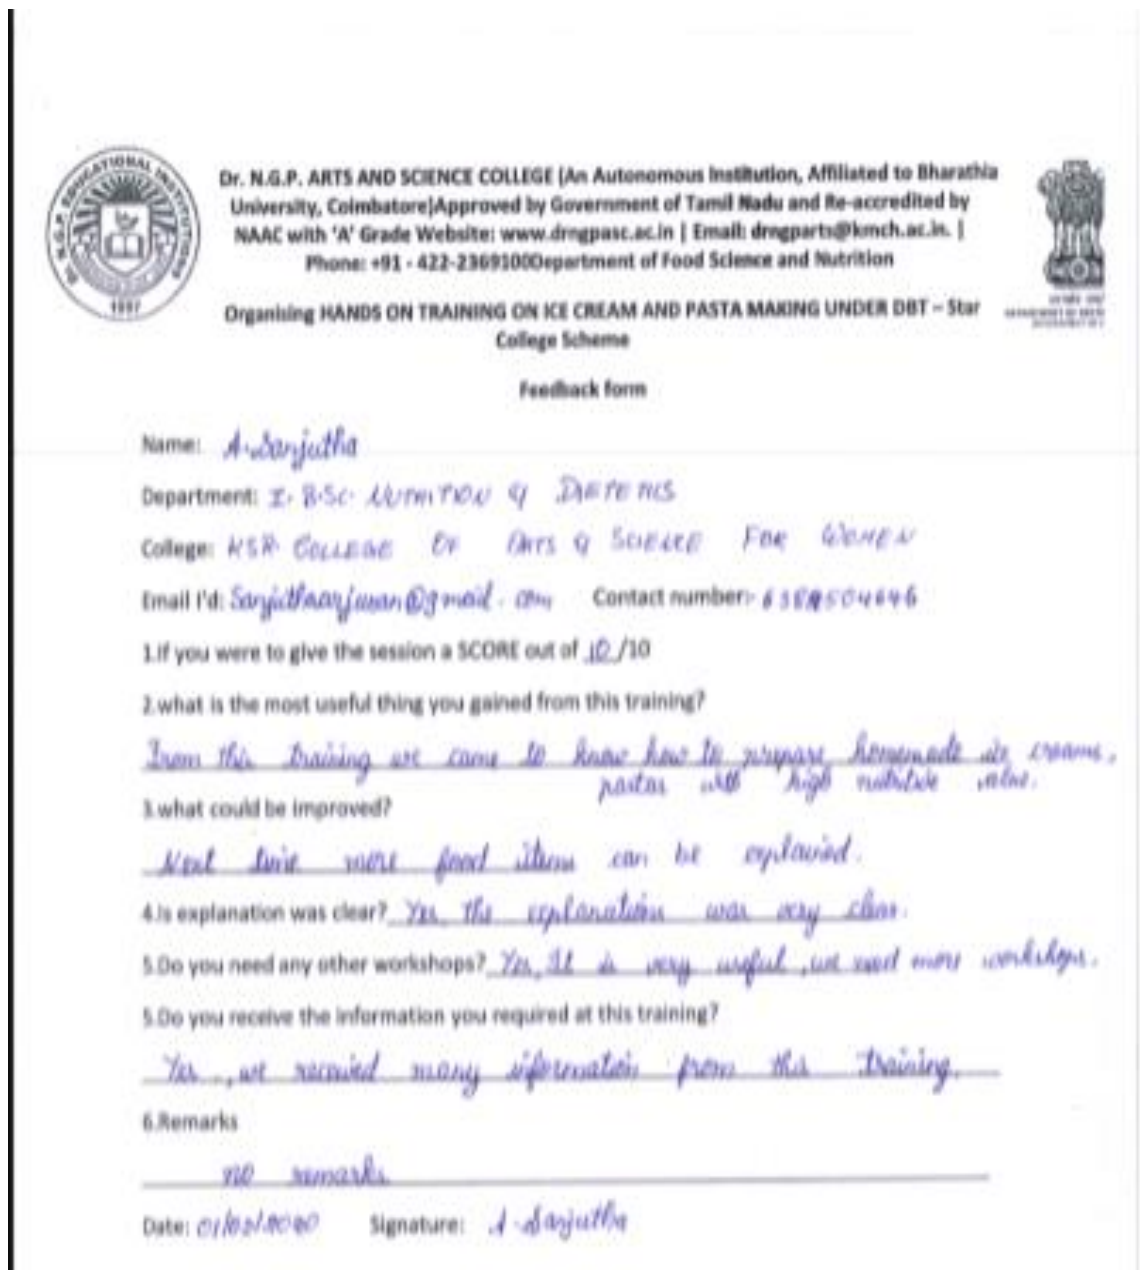 Dr. N.G.P. EDUCATIONAL INSTITUTIONS
1997
Dr. N.G.P. ARTS AND SCIENCE COLLEGE (An Autonomous Institution, Affiliated to Bharathia
University, Coimbatore)Approved by Government of Tamil Nadu and Re-accredited by
NAAC with 'A' Grade Website: www.drngpasc.ac.in | Email: drngparts@kmch.ac.in. |
Phone: +91 - 422-2369100Department of Food Science and Nutrition
Organising HANDS ON TRAINING ON ICE CREAM AND PASTA MAKING UNDER DBT – Star
College Scheme
Feedback form
Name: A. Sanjutha
Department: I. B.Sc. NUTRITION & DIETETICS
College: KSR COLLEGE OF ARTS & SCIENCE FOR WOMEN
Email I'd: Sanjuthaarjunan@gmail.com Contact number:-
1.If you were to give the session a SCORE out of 10/10
2.what is the most useful thing you gained from this training?
From this training we came to know how to prepare homemade ice creams,
pastas with high nutritive value.
3.what could be improved?
Next time more food items can be explained.
4.Is explanation was clear? Yes, the explanation was very clear.
5.Do you need any other workshops? Yes, It is very useful, we need more workshops.
5.Do you receive the information you required at this training?
Yes, we received many information from this training.
6.Remarks
no remarks
Date: Signature: A. Sanjutha